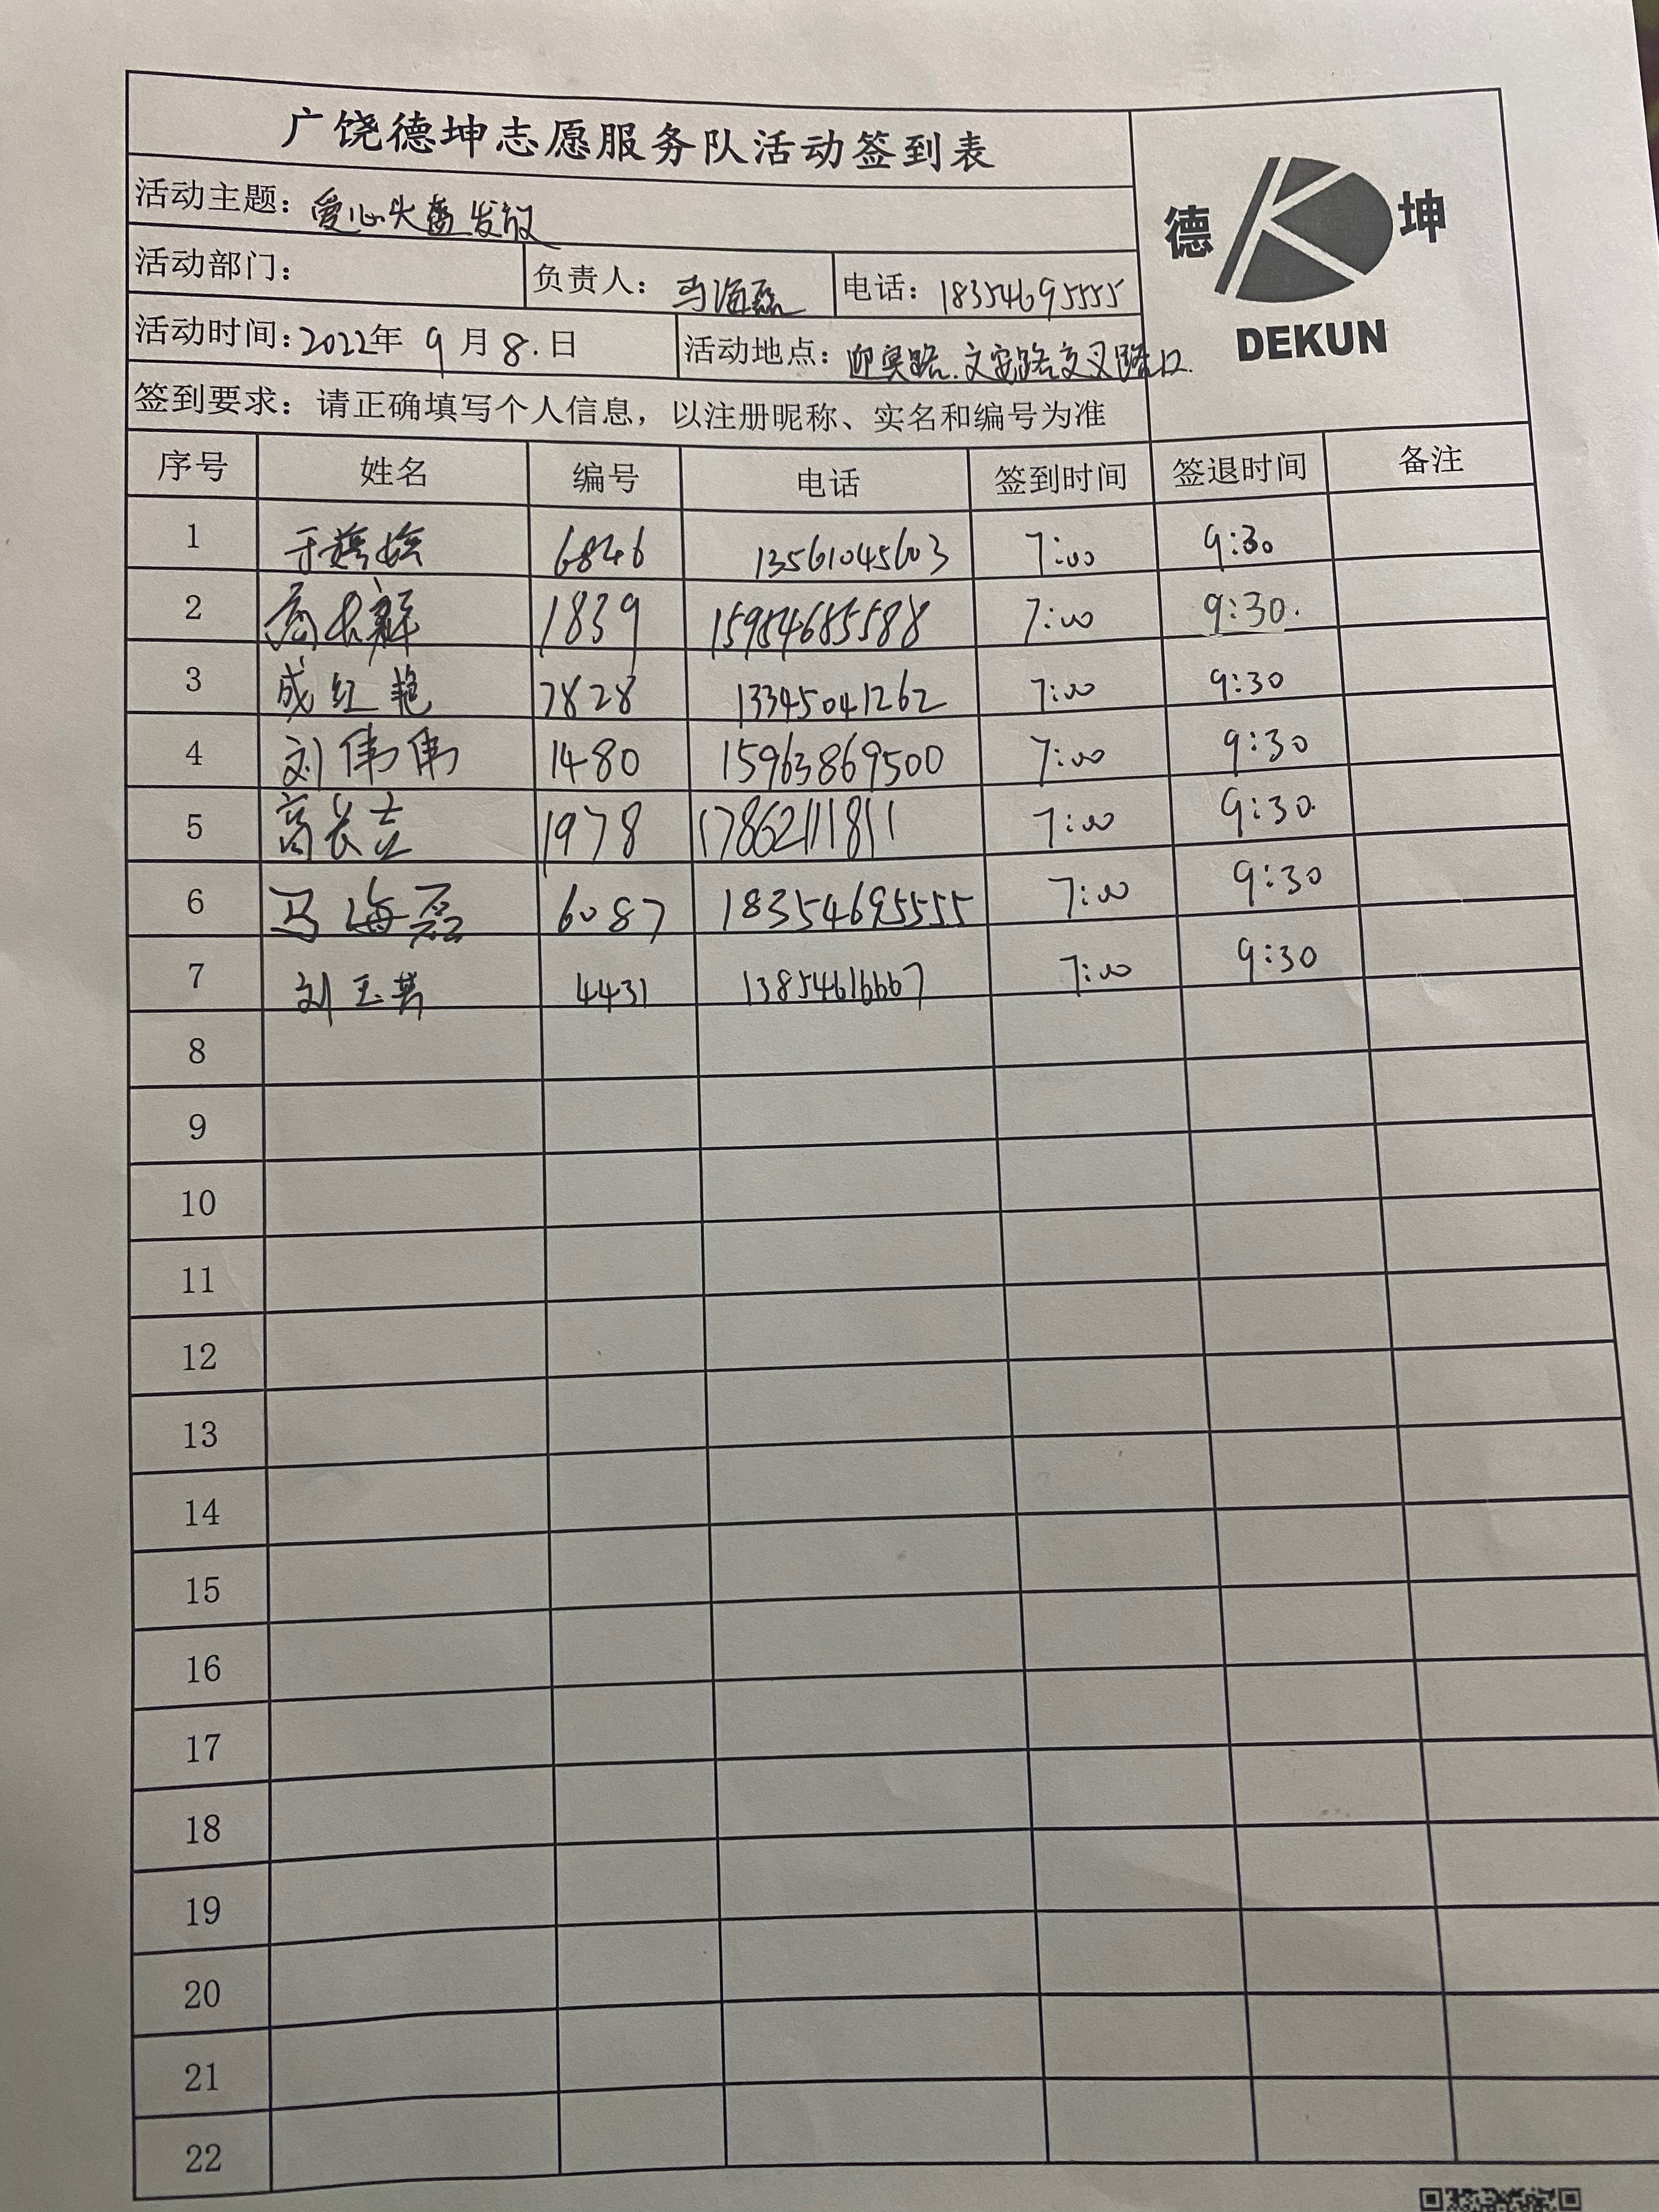 广饶德坤志愿服务队活动签到表
德 坤
DEKUN
活动主题：爱心头盔发放
活动部门： 负责人：马海磊 电话：18354695555
活动时间：2022年 9月 8.日 活动地点：迎宾路.文安路交叉路口.
签到要求：请正确填写个人信息，以注册昵称、实名和编号为准
序号 姓名 编号 电话 签到时间 签退时间 备注
1 6846 13561045603 7:00 9:30
2 1839 15954685588 7:00 9:30.
3 成红艳 7828 13345041262 7:00 9:30
4 刘伟伟 1480 15963869500 7:00 9:30
5 高长吉 1978 17862111811 7:00 9:30.
6 马海磊 6087 18354695555 7:00 9:30
7 刘玉英 4431 13854616667 7:00 9:30
8
9
10
11
12
13
14
15
16
17
18
19
20
21
22